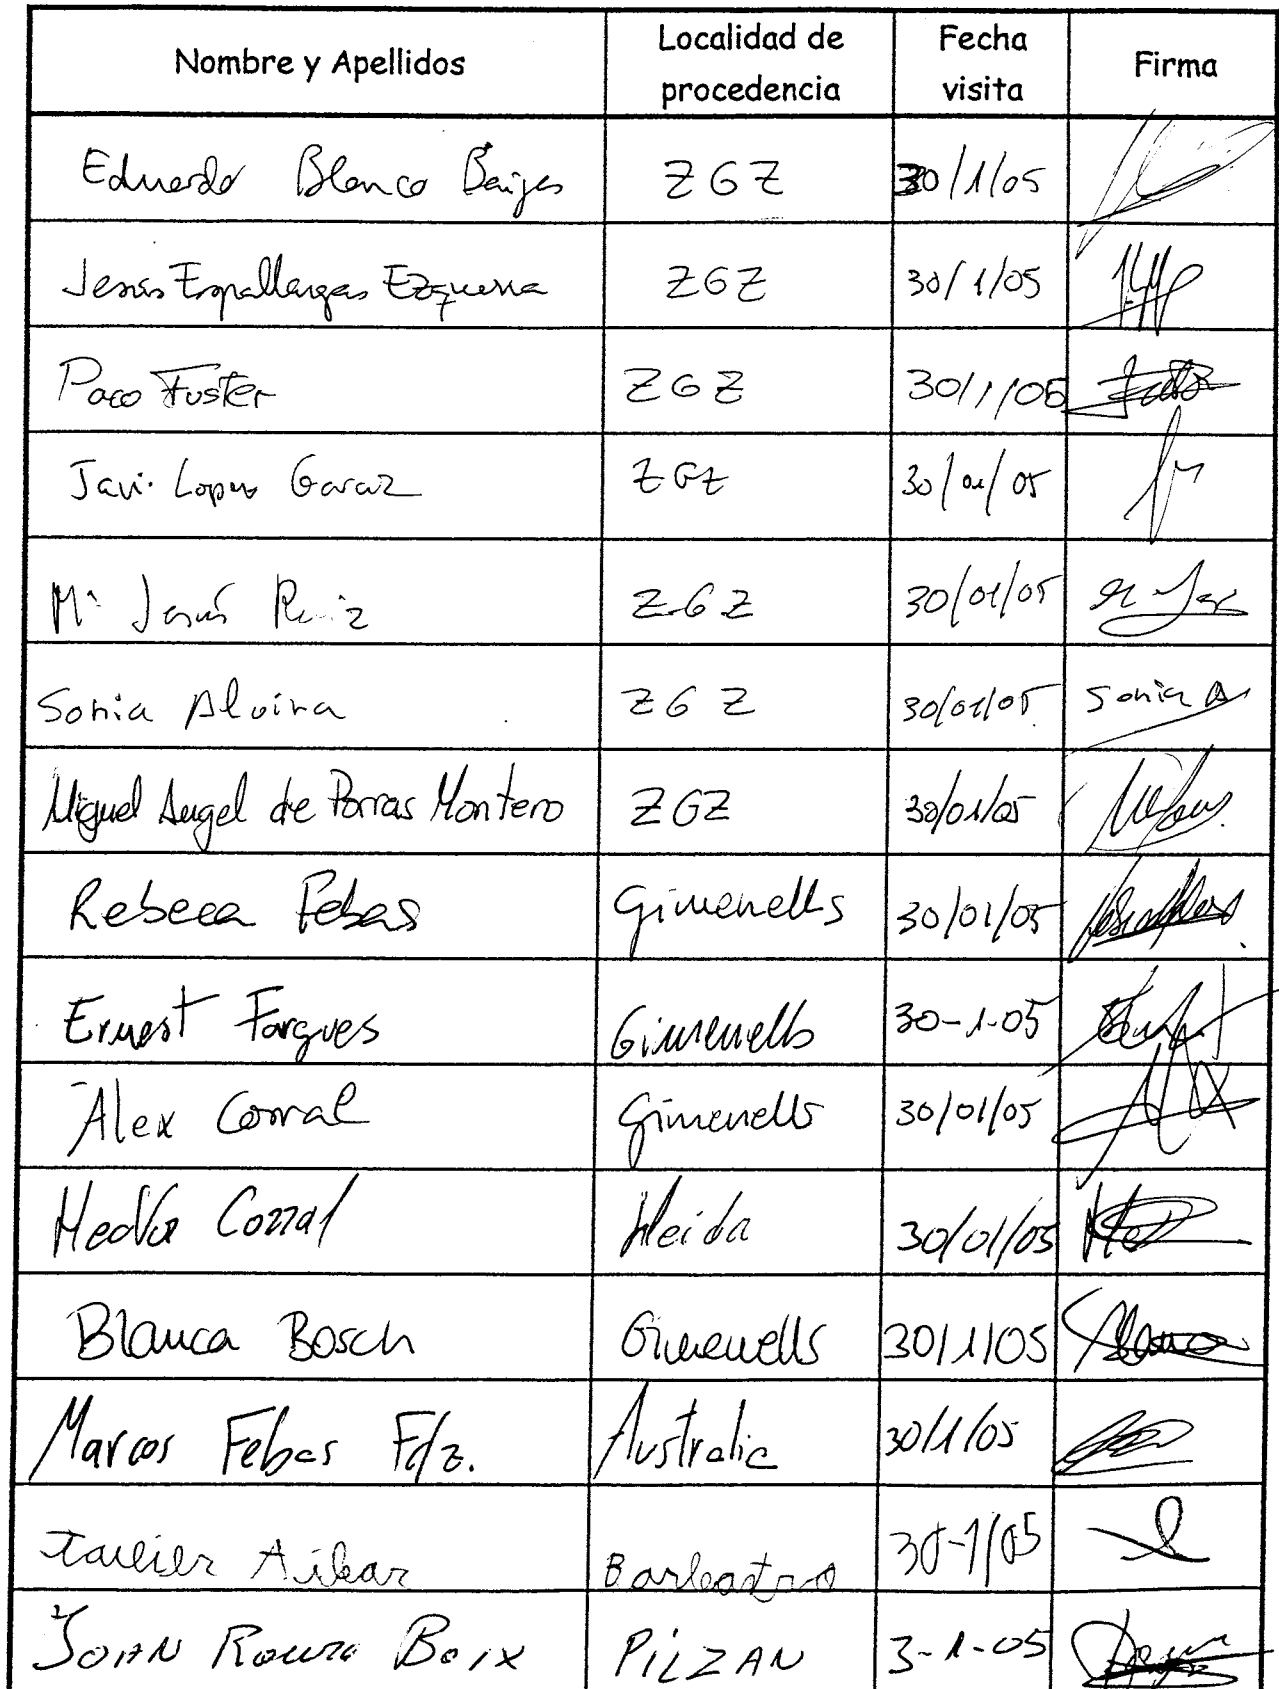 Nombre y Apellidos Localidad de procedencia Fecha visita Firma
Eduardo Blanco Baiges ZGZ 30/1/05
Jesús Espallargas Ezquerra ZGZ 30/1/05
Paco Fuster ZGZ 30/1/05
Javi Lopez ZGZ 30/01/05
Mª Jesús Ruiz ZGZ 30/01/05
Sonia Alvira ZGZ 30/01/05 Sonia A
Miguel Angel de Porras Montero ZGZ 30/01/05
Rebeca Febas Gimenells 30/01/05
Ernest Fargues Gimenells 30-1-05
Alex Corral Gimenells 30/01/05
Corral Lleida 30/01/05
Blanca Bosch Gimenells 30/1/05
Marcos Febas Fdz. Australia 30/1/05
Javier Aibar Barbastro 30-1/05
JOAN Boix PILZAN 3-1-05